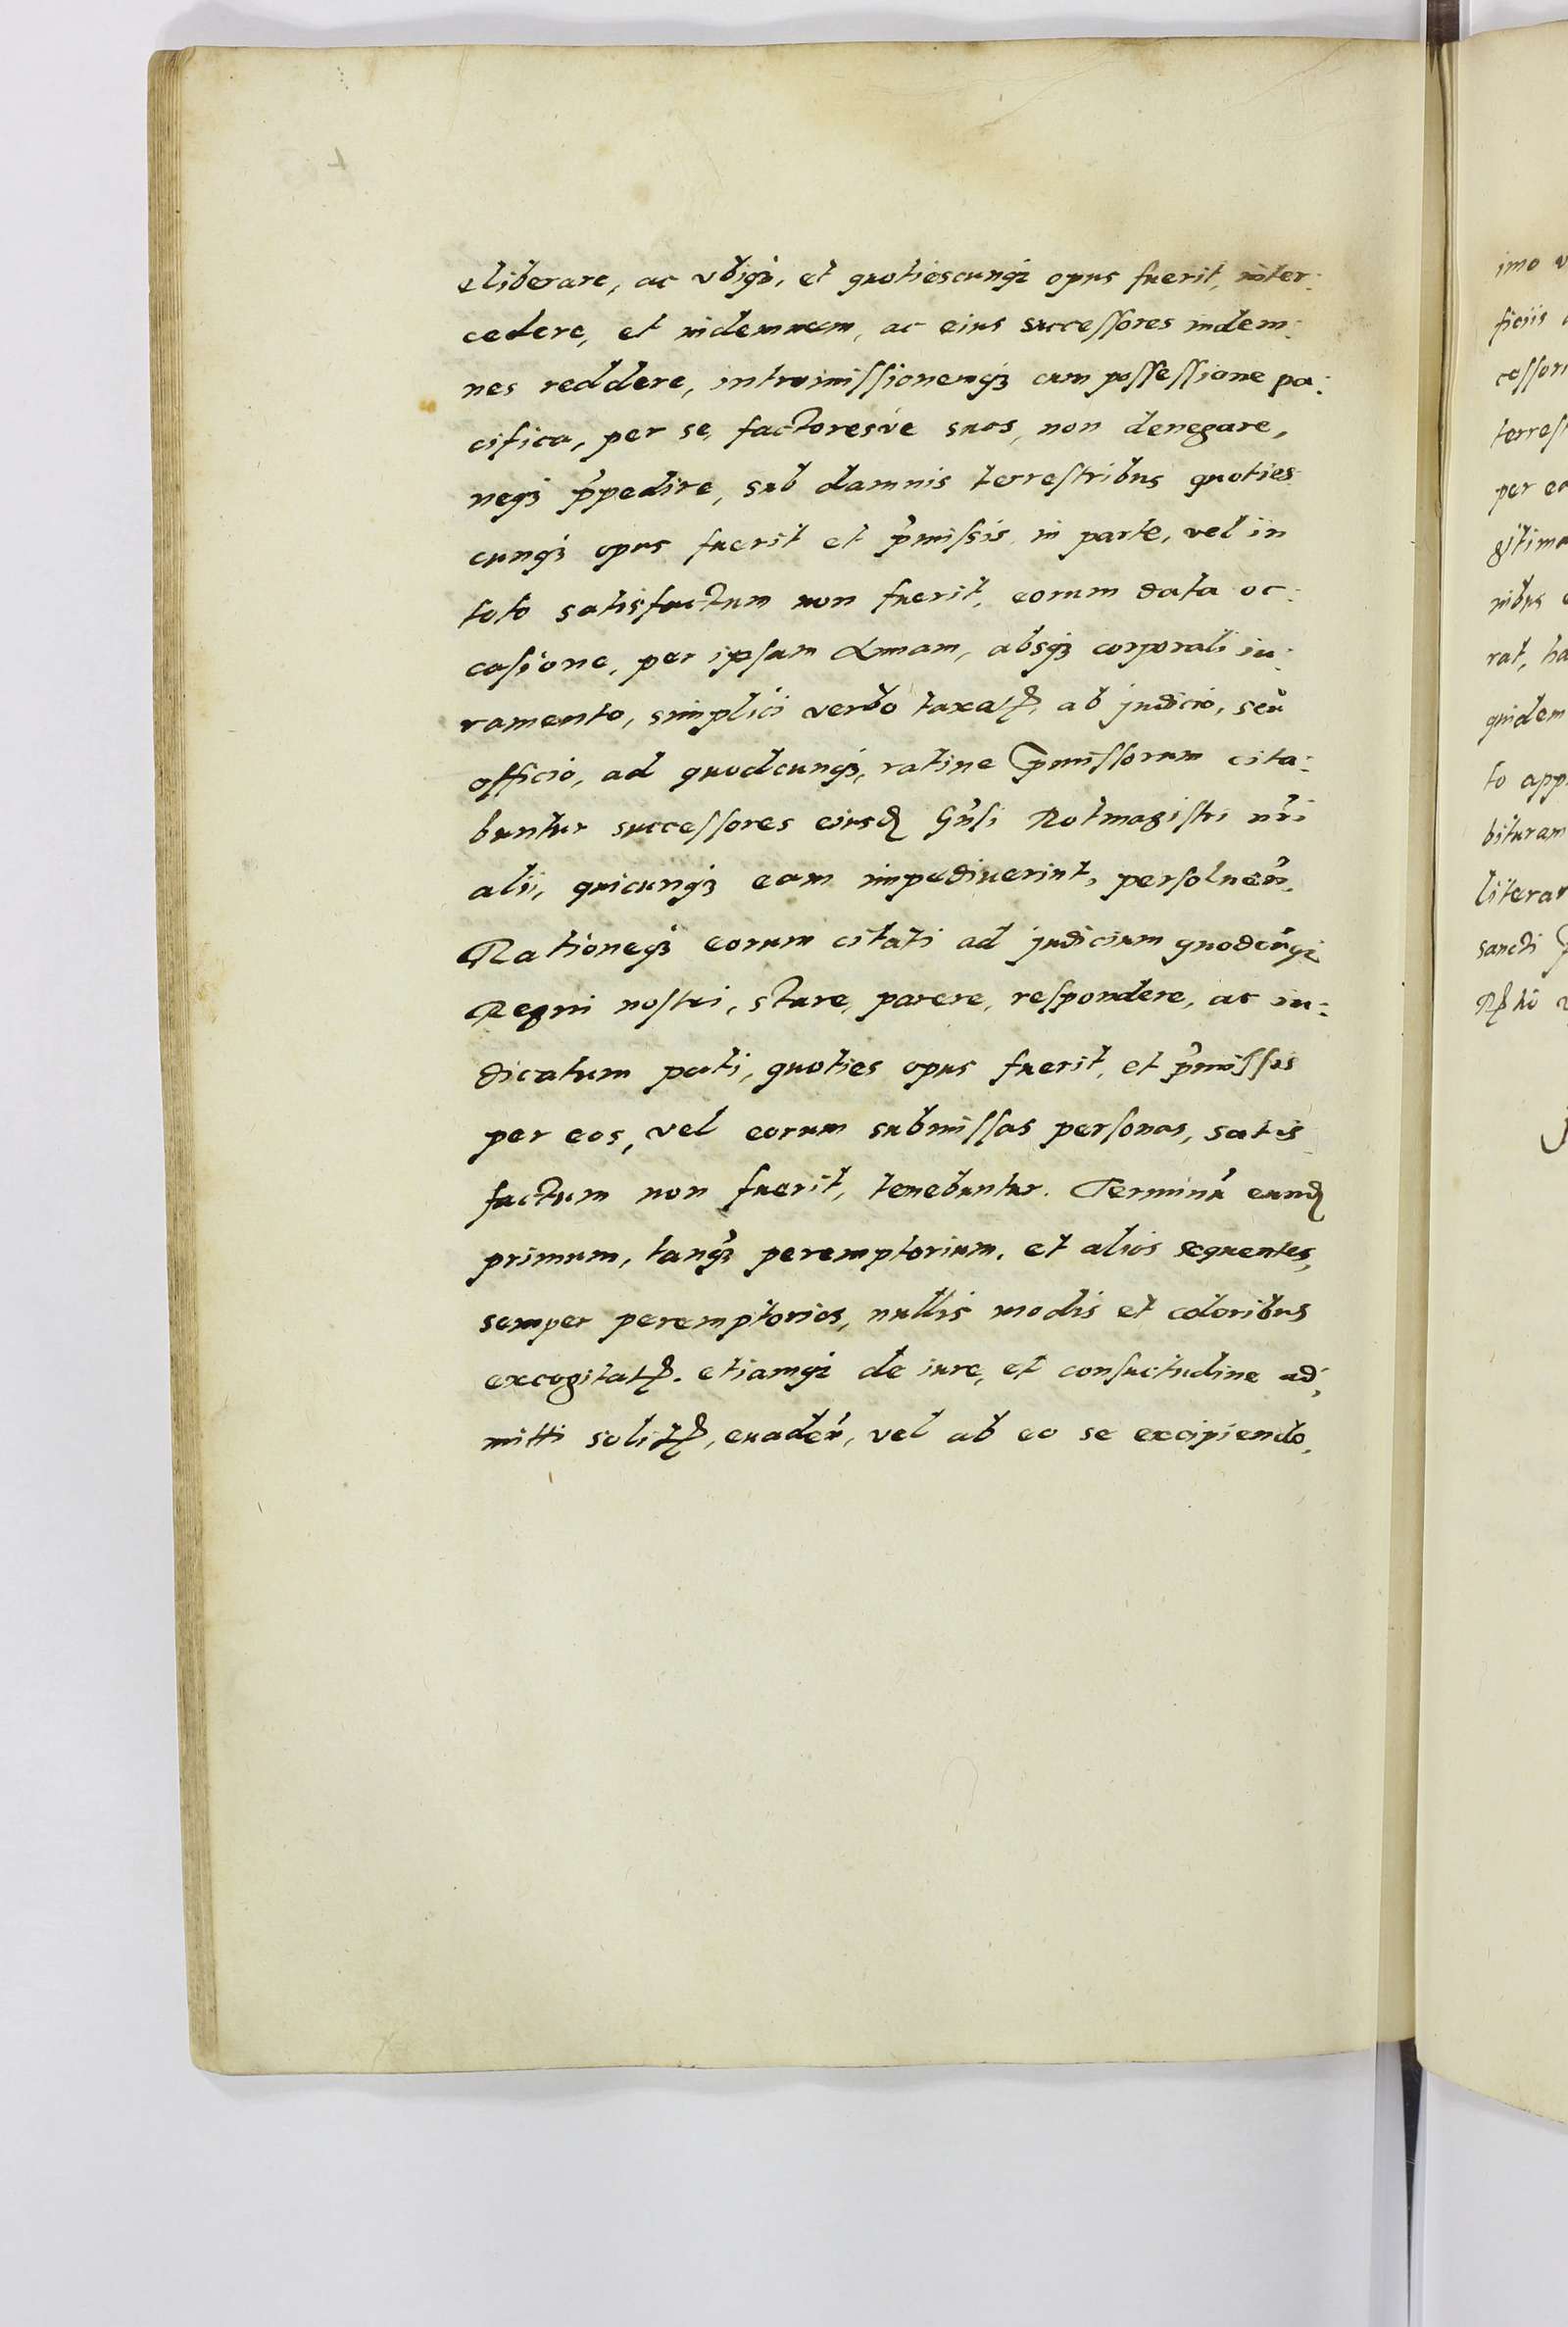 eliberare, ac vbiqȝ, et quotiescunqȝ opus fuerit, inter:
cedere, et indemnem, ac eius succeſſores indem:
nes reddere, intromiſſionemqȝ cum poſſeſſione pa:
cifica, per se, factoresve suos, non denegare,
neqȝ p̃pedire, sub damnis terreſtribus quoties
cunqȝ opus fuerit et p̃miſsis in parte, vel in
toto satisfactum non fuerit, eorum data oc:
caſione, per ipſam absqȝ corporali iu:
ramento, simplici verbo taxatꝭ, ab judicio, seu
officio, ad quodcunqȝ, ratine p̃miſſorum cita:
buntur succeſſores eiusđ Gñsi Rotmagiſtri nri
alii, quicunqȝ eam impediuerint, perſoluen̄.
Rationeqȝ eorum citati ad judicium quodcūqȝ
Regni noſtri, stare, parere, reſpondere, ac iu:
dicatum pati, quoties opus fuerit, et p̃miſſis
per eos, vel eorum submiſſas perſonas, satis
factum non fuerit, tenebuntur. Terminū eunđ
primum, tanqȝ peremptorium, et alios sequentes,
semper peremptorios, nullis modis et coloribus
excogitatꝭ. etiamqȝ de iure, et conſuetudine ad:
mitti solitꝭ, euaden̄, vel ab eo se excipiendo,
imo v
ficiis
ceſſori
terreſt
per eo
gitima
nibus
rat, ha
quidem
to app
bituram
literar
sancti